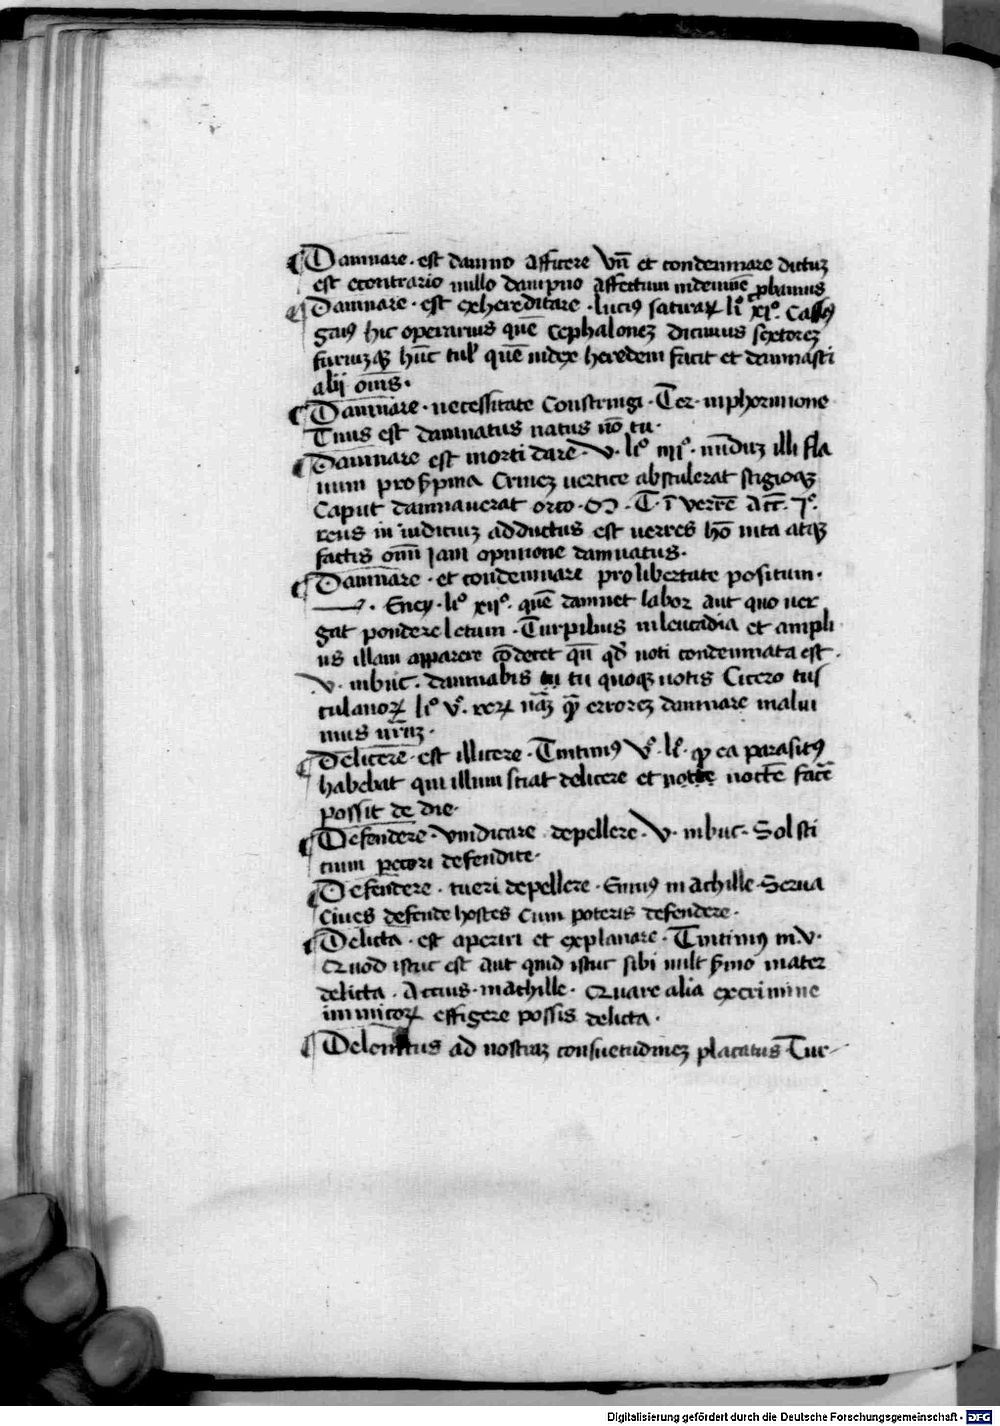 Damnare · est damno afficere vn̄ et condemnare dictuȝ
est econtrario nullo dampno affectum indemnē ꝓbamus
Damnare · est exhereditare · lucius saturaꝝ liº xiº. Cassiꝰ
gaiꝰ hic operarius quē cephalonez dicimus sextorez
furiuzqȝ hūc tul' quē index heredem facit et damnasti
alij oms̄ ·
Damnare · necessitate constringi · Ter · inphormione
Tuus est damnatus natus nō tu ·
Damnare est morti dare · v · liº iiiiº · nūduȝ illi fla
uum proserpina crinez vertice abstulerat stigioqȝ
Caput damnauerat orco · M · T · ī verrē Acc̄ · 7º ·
reus in iudiciuȝ adductus est uerres hō uita atqȝ
factis om̄ iam opinione damnatus ·
Damnare · et condemnare pro libertate positum ·
v · Eney · liº xiiº · quē damnet labor aut quo uer
gat pondere letum · Turpilius inleucadia et ampli
us illam apparere cōdecet qn̄ qd̄ uoti condemnata est ·
v · inbuc̄ · damnabis tu quoqȝ uotis Cicero tus
culanoꝝ liº vº · reꝝ nāȝ ꝙ errorez damnare malui
mus nr̄uȝ ·
Delicere · est illicere · Titiniꝰ vº · lº · ꝙ ea parasitꝰ
habebat qui illum sciat delicere et nocte noctē facē
possit de die ·
Defendere · vindicare depellere · v · inbuc · Solsti
cium pecori defendite ·
Defendere · tueri depellere · Eniꝰ in achille · Serua
ciues defende hostes cum poteris defendere ·
Delicta · est aperiri et explanare · Titiniꝰ in v ·
Quod istuc est aut quid istuc sibi uult sermo mater
delicta · Accius · inachille · Quare alia ex crimine
inimicoꝝ effigere possis delicta ·
Delenitus ad nostraȝ consuetudinez placatus Tur-
Digitalisierung gefördert durch die Deutsche Forschungsgemeinschaft · DFG